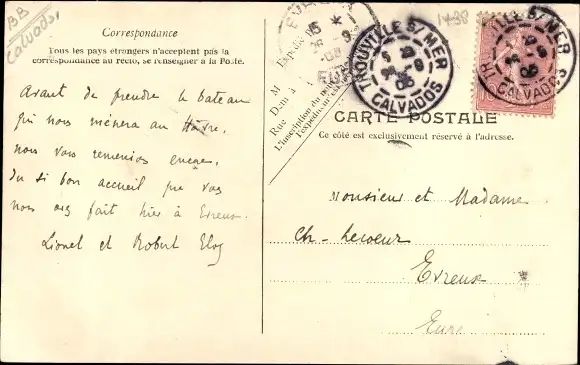 BB
CALVADOS
Correspondance
Tous les pays étrangers n'acceptent pas la
correspondance au recto, se renseigner à la Poste.
Avant de prendre le bateau
qui nous mènera au Hâvre,
nous vous remercions encore,
du si bon accueil que vous
nous avez fait hier à Evreux.
Lionel et Robert Eloy
M
Dem à
Rue
Expédié
L'inscription du
l'expéditeur
TROUVILLE S/ MER
CALVADOS
1438
TR VILLE S/ MER
CALVADOS
CARTE POSTALE
Ce côté est exclusivement réservé à l'adresse.
Monsieur et Madame
Ch. Lecoeur
Evreux
Eure